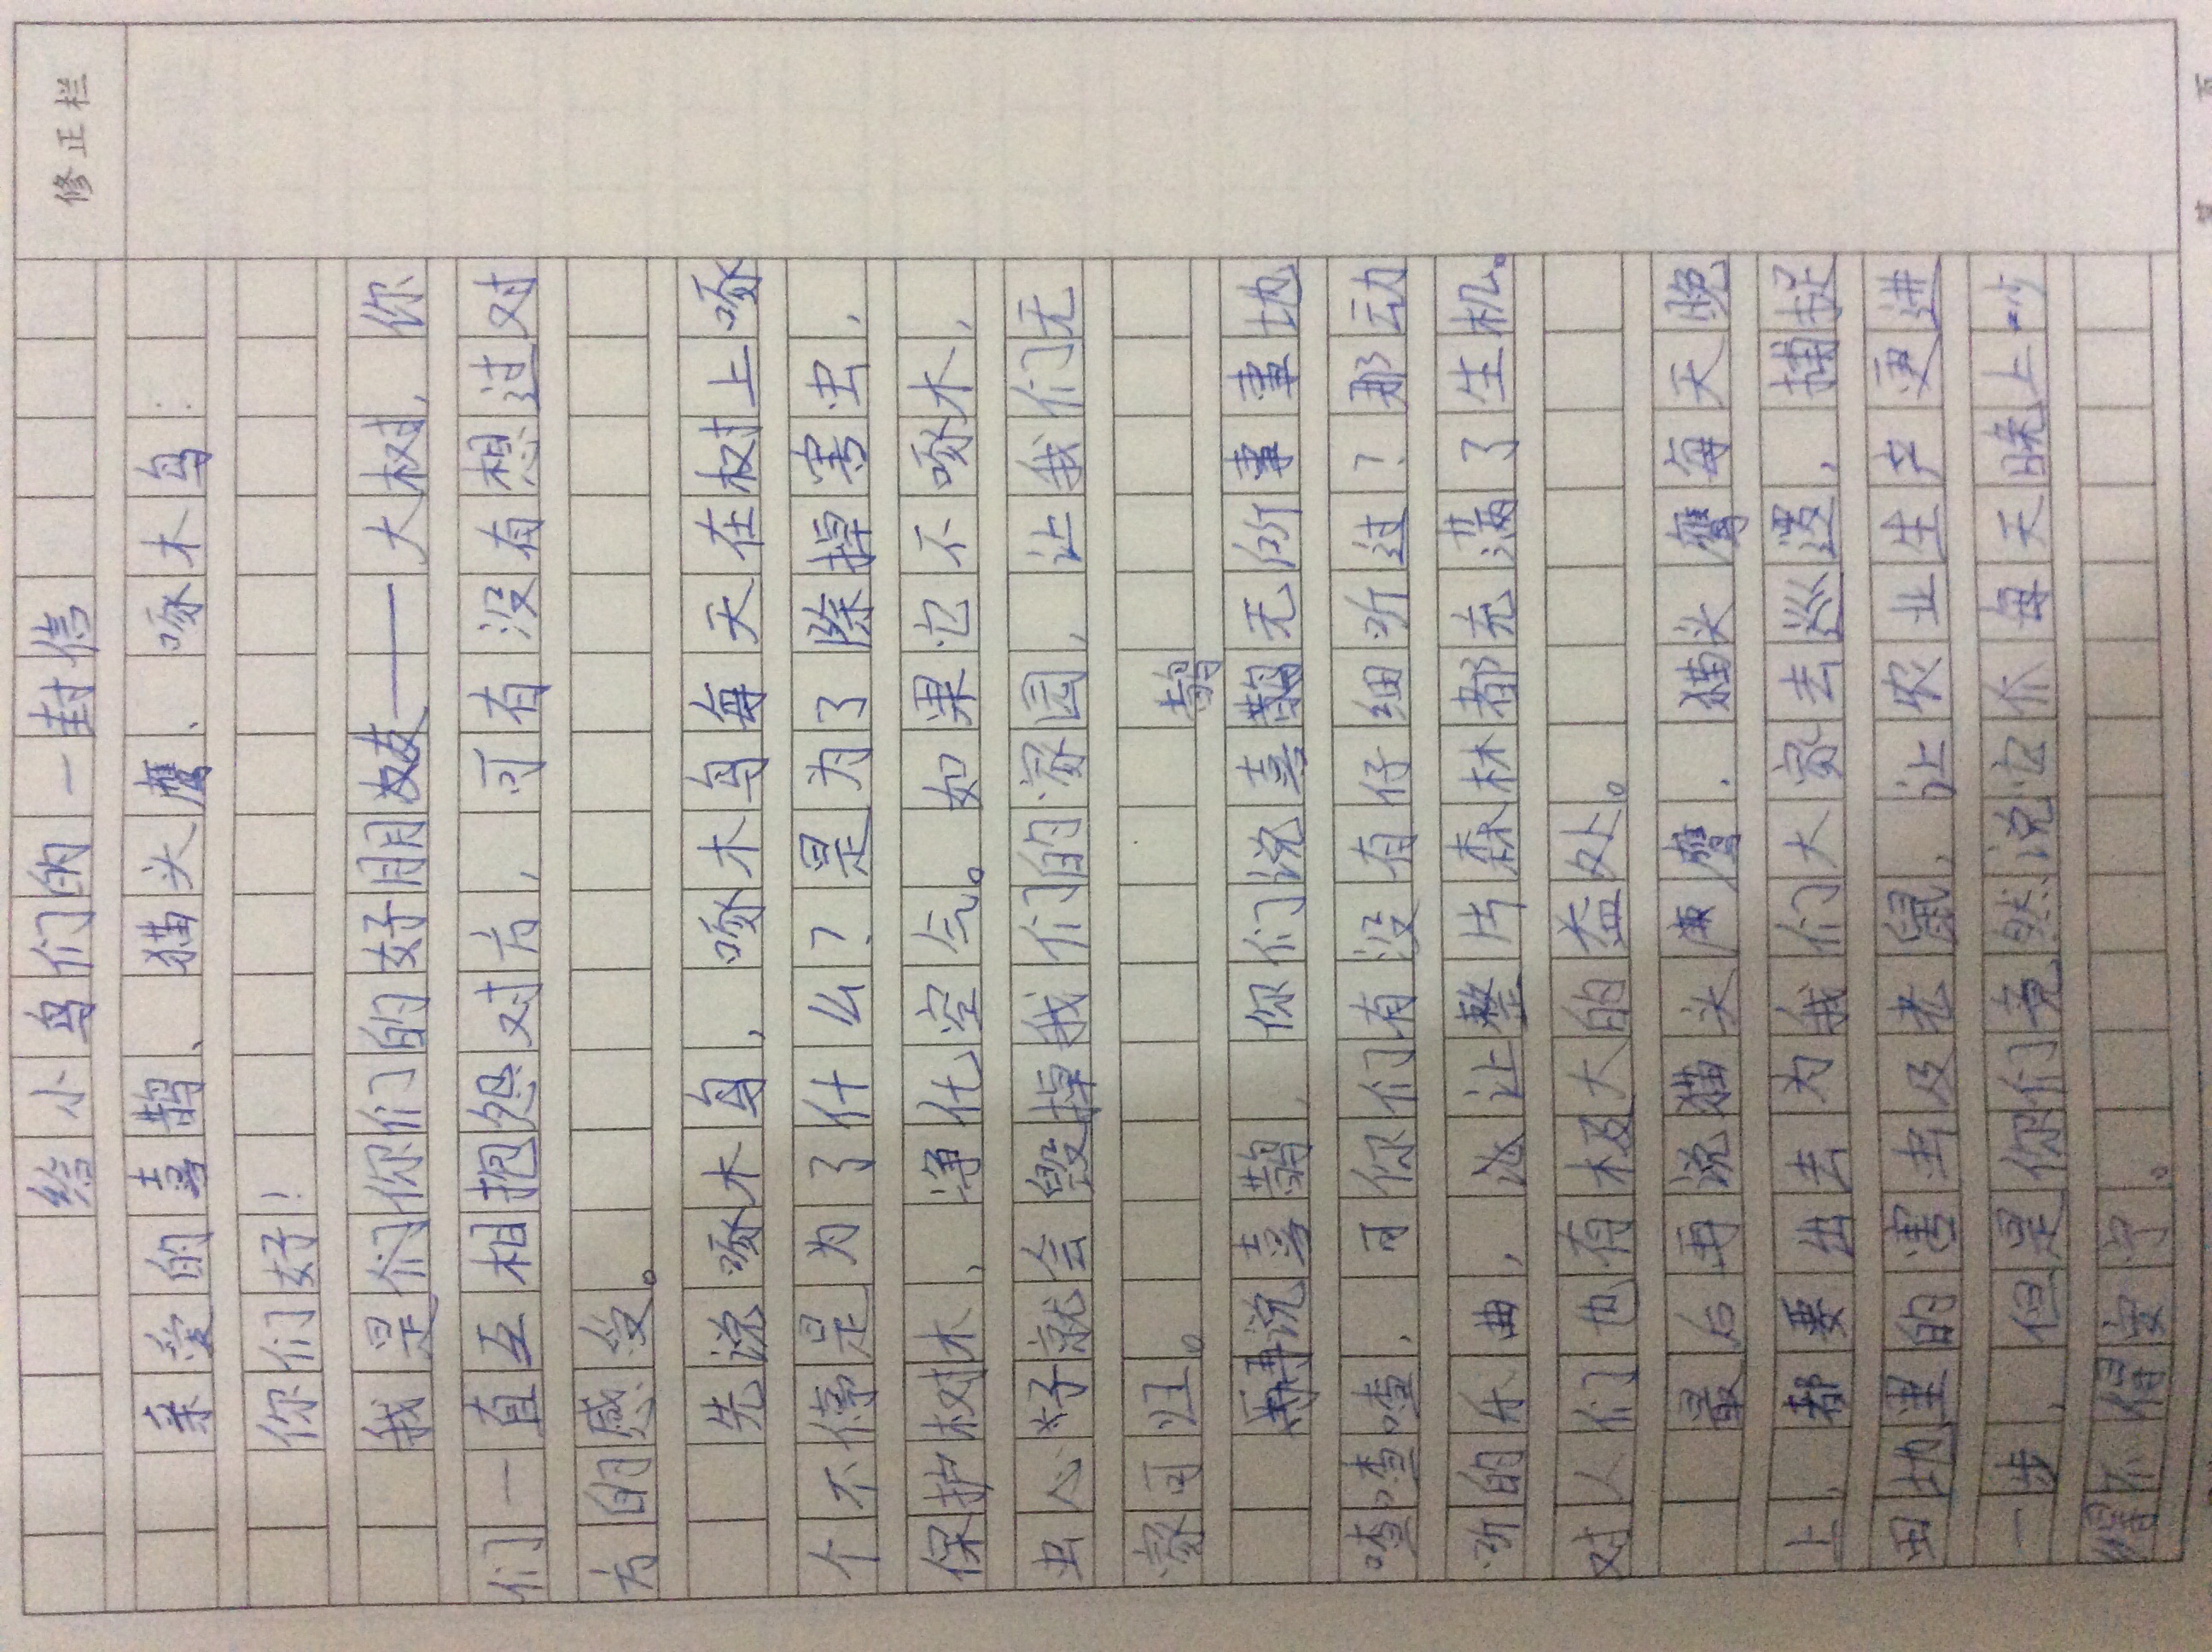 修正栏
给小鸟们的一封信
亲爱的喜鹊、猫头鹰、啄木鸟:
你们好!
我是你们的好朋友——大树,你
们一直互相抱怨对方,可有没有想过对
方的感受。
先说啄木鸟,啄木鸟每天在树上啄
个不停是为了什么?是为了除掉害虫,
保护树木、净化空气。如果它不啄木,
虫心子就会毁掉我们的家园,让我们无
家可归。
再说喜鹊,你们说喜鹊无所事事地
喳喳喳,可你们有没有仔细听过?那动
听的乐曲,让整片森林都充满了生机。
对人们也有极大的益处。
最后再说猫头鹰,猫头鹰每天晚
上,都要出去为我们大家去巡逻,捕捉
田地里的害虫及老鼠,让农业生产更进
一步,但是你们竟然说它每天晚上吵
得不得安宁。
第 页